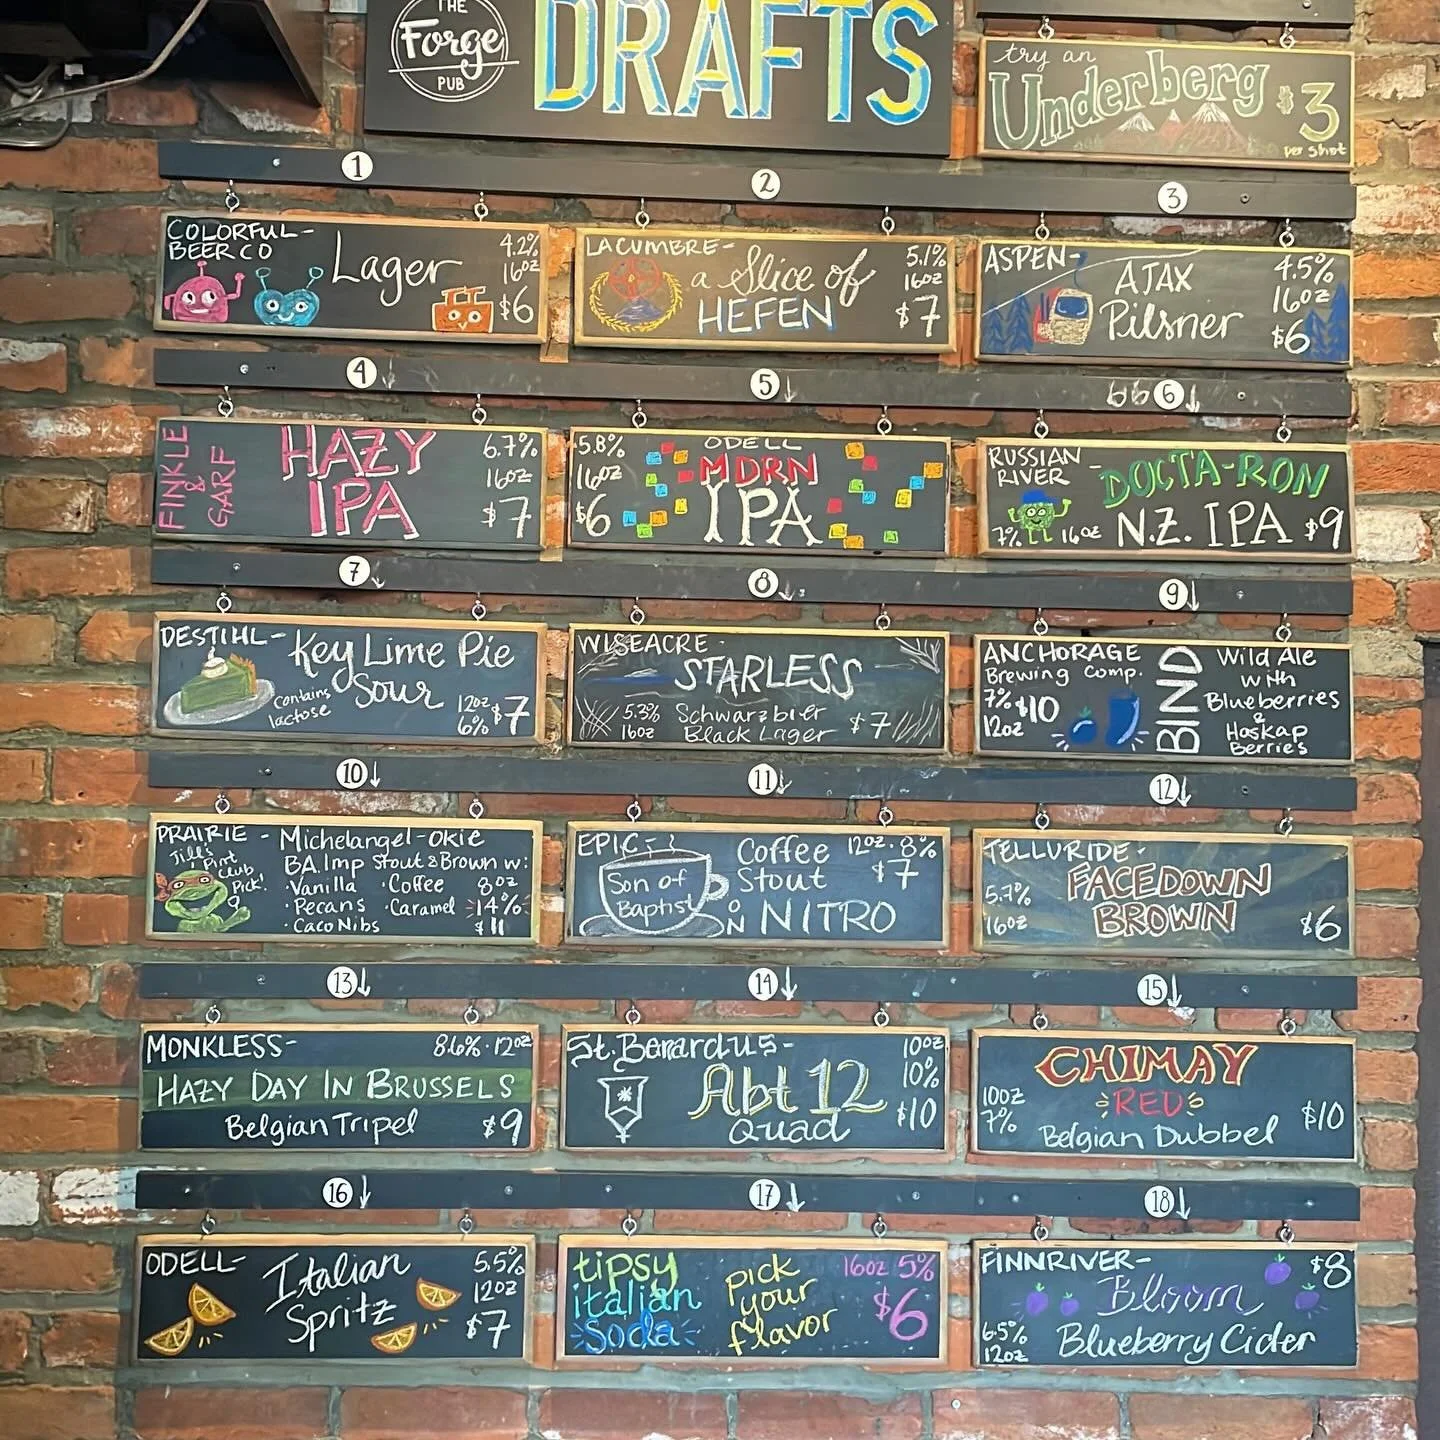 THE
Forge
PUB
DRAFTS
try an
Underberg
$3
per shot
1
COLORFUL-
BEER CO
Lager
4.2%
16oz
$6
2
LA CUMBRE-
a Slice of
HEFEN
5.1%
16oz
$7
3
ASPEN-
AJAX
Pilsner
4.5%
16oz
$6
4
FINKLE
&
GARF
HAZY
IPA
6.7%
16oz
$7
5
5.8%
16oz
$6
ODELL
MDRN
IPA
6
RUSSIAN
RIVER -
DOCTA-RON
N.Z. IPA $9
7% 16oz
7
DESTIHL-
Key Lime Pie
Sour
contains
lactose
12oz
6%
$7
8
WISEACRE-
STARLESS
5.3%
16oz
Schwarzbier
Black Lager
$7
9
ANCHORAGE
Brewing Comp.
7%
$10
12oz
BIND
Wild Ale
with
Blueberries
&
Haskap
Berries
10
PRAIRIE - Michelangel-okie
Jill's
Pint
Club
Pick!
BA. Imp Stout & Brown w:
·Vanilla ·Coffee
·Pecans ·Caramel
·Caco Nibs
8oz
14%
$11
11
EPIC-
Son of
Baptist
Coffee
Stout
12oz·8%
$7
ON NITRO
12
TELLURIDE-
FACEDOWN
BROWN
5.7%
16oz
$6
13
MONKLESS-
8.6%·12oz
HAZY DAY IN BRUSSELS
Belgian Tripel
$9
14
St. Benardus-
Abt 12
Quad
10oz
10%
$10
15
CHIMAY
RED
Belgian Dubbel
10oz
7%
$10
16
ODELL-
Italian
Spritz
5.5%
12oz
$7
17
tipsy
italian
Soda
pick
your
flavor
16oz 5%
$6
18
FINNRIVER-
$8
Bloom
Blueberry Cider
6.5%
12oz